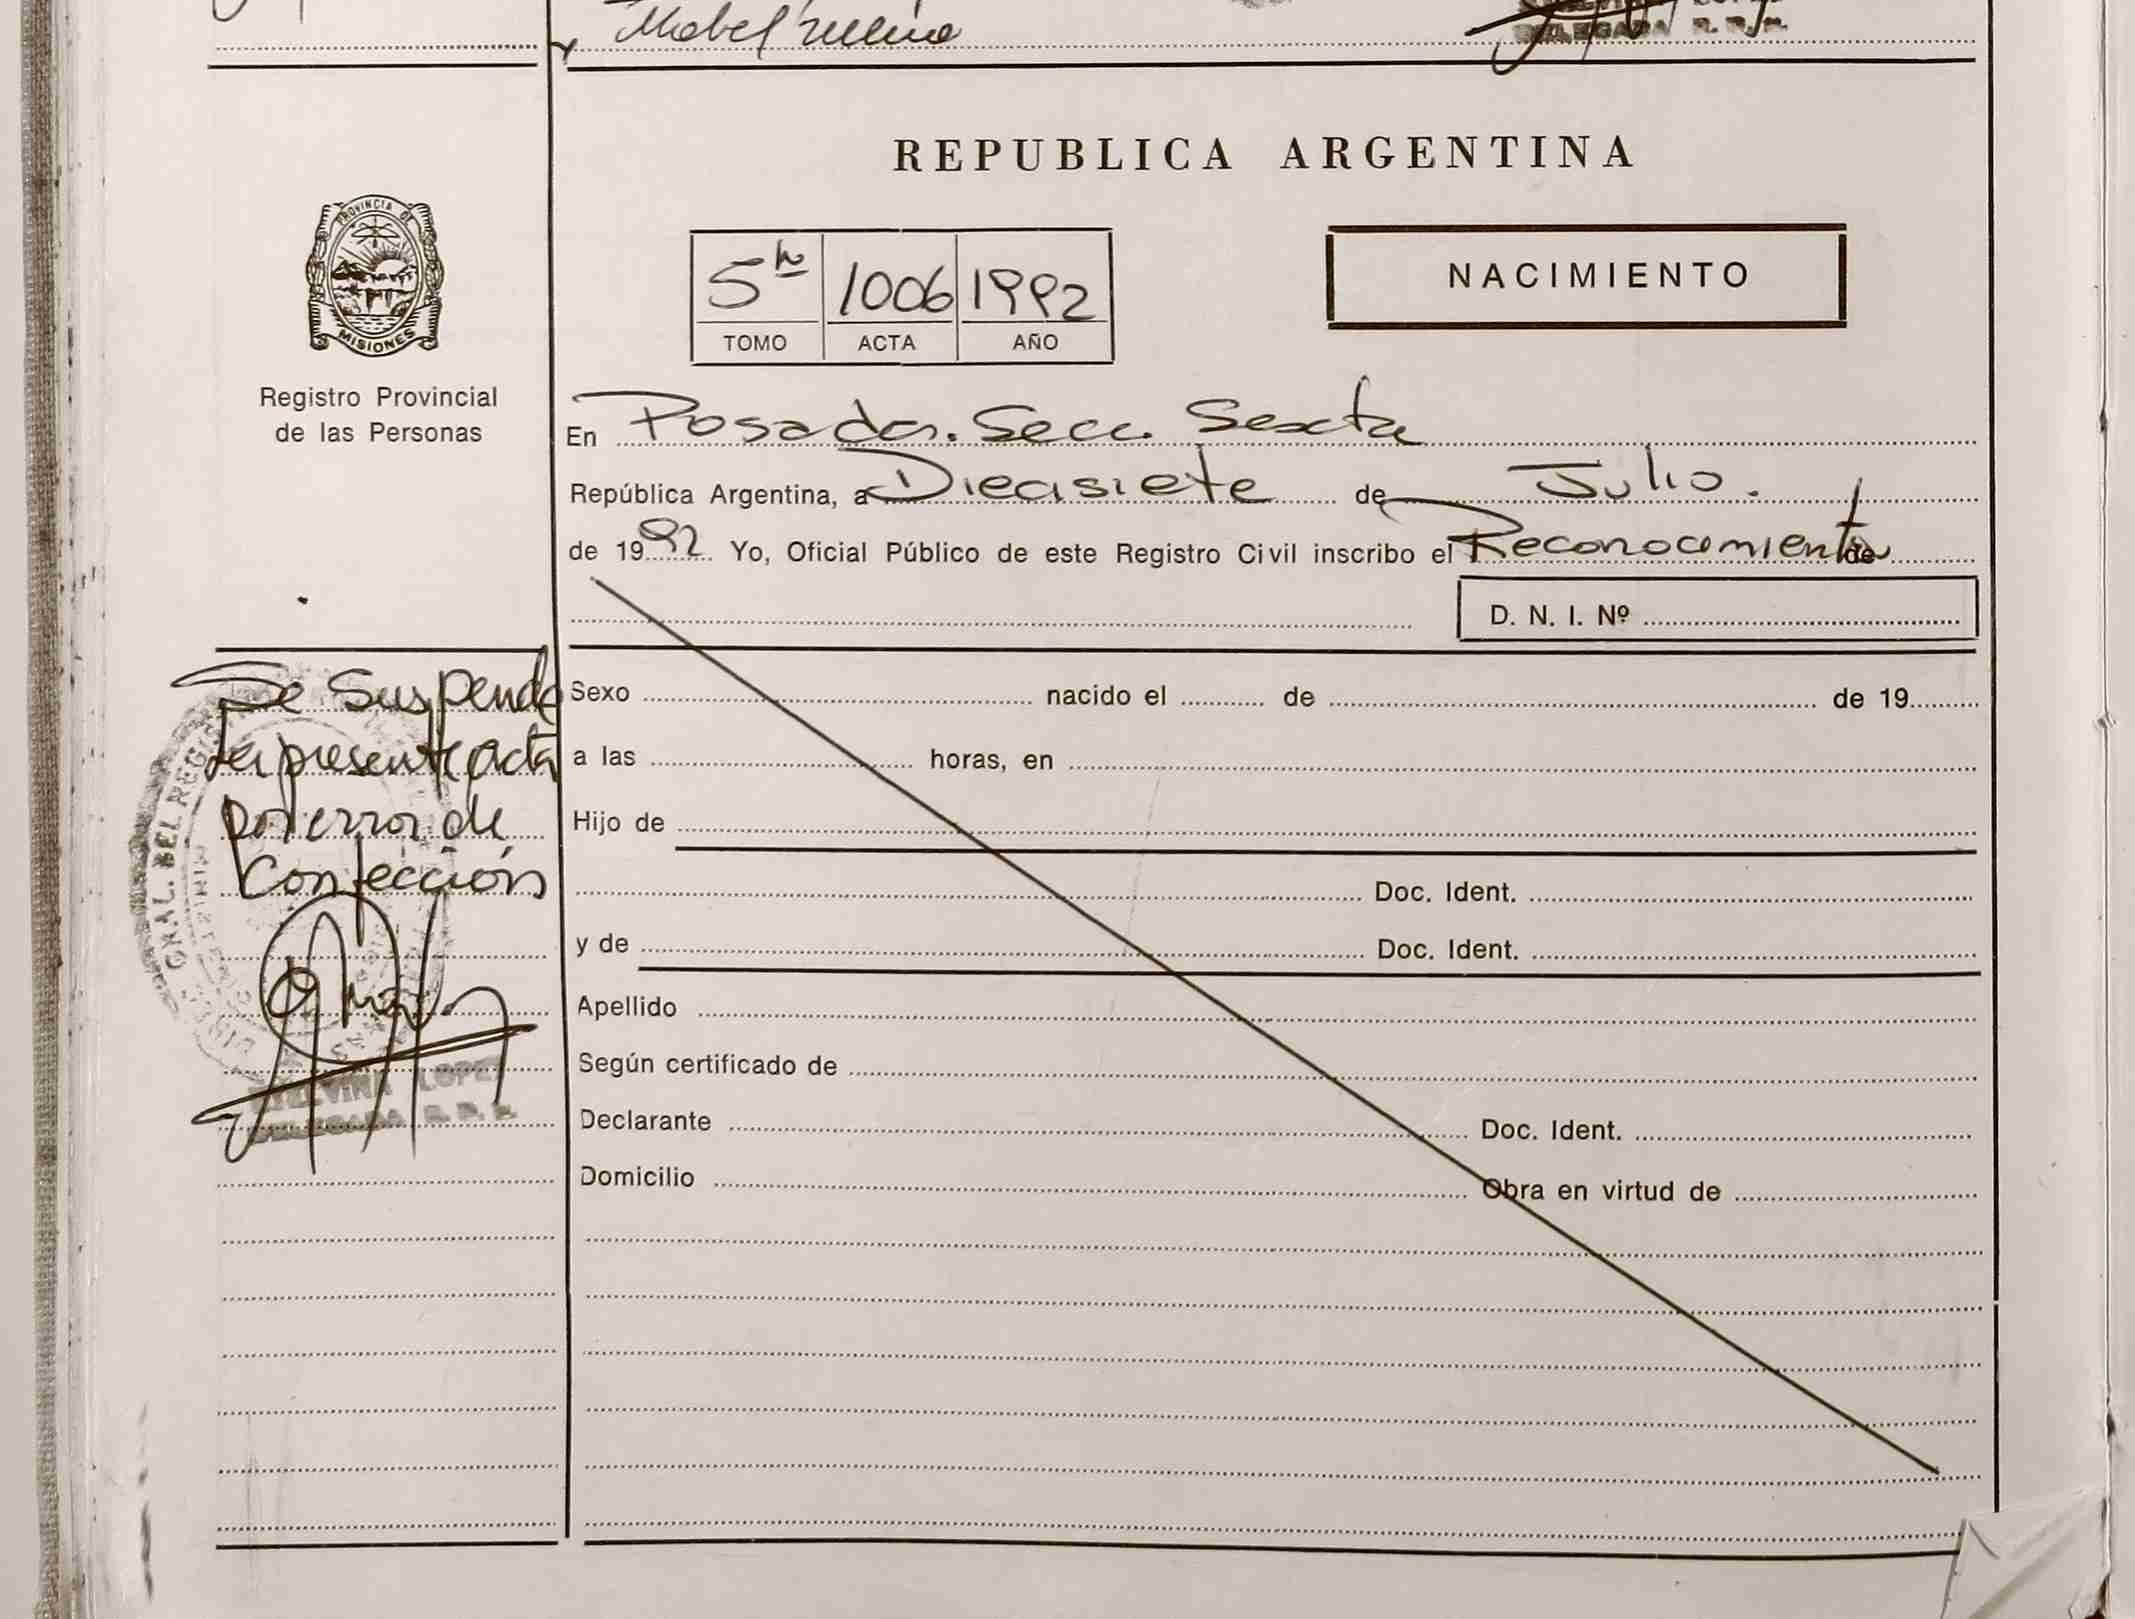 Mabel
DELEGADA R. P. P.
REPUBLICA ARGENTINA
PROVINCIA DE
MISIONES
Registro Provincial
de las Personas
5to 1006 1992
TOMO ACTA AÑO
NACIMIENTO
En Posadas. Secc. Sexta
República Argentina, a Diecisiete de Julio.
de 1992 Yo, Oficial Público de este Registro Civil inscribo el Reconocimiento de
D. N. I. Nº
Se Suspende
la presente acta
por error de
Confección
GRAL. DEL REGIS
ETELVINA LOPEZ
DELEGADA R. P. P.
Sexo nacido el de de 19
a las horas, en
Hijo de
Doc. Ident.
y de Doc. Ident.
Apellido
Según certificado de
Declarante Doc. Ident.
Domicilio Obra en virtud de